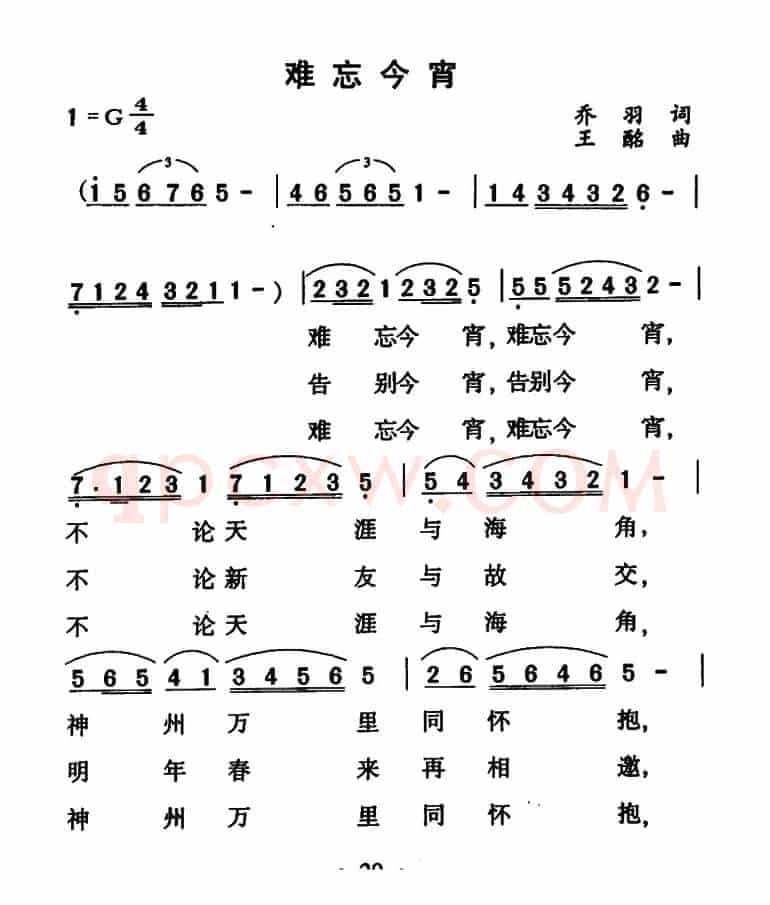 难忘今宵
1=G 4/4
乔羽词
王酩曲
(i 5 6 7 6 5 - | 4 6 5 6 5 1 - | 1 4 3 4 3 2 6 - |
7 1 2 4 3 2 1 1 - ) | 2 3 2 1 2 3 2 5 | 5 5 5 2 4 3 2 - |
难 忘今 宵,难忘今 宵,
告 别今 宵,告别今 宵,
难 忘今 宵,难忘今 宵,
7 · 1 2 3 1 7 1 2 3 5 | 5 4 3 4 3 2 1 - |
不 论天 涯 与 海 角,
不 论新 友 与 故 交,
不 论天 涯 与 海 角,
5 6 5 4 1 3 4 5 6 5 | 2 6 5 6 4 6 5 - |
神 州 万 里 同 怀 抱,
明 年 春 来 再 相 邀,
神 州 万 里 同 怀 抱,
qpcxw.com